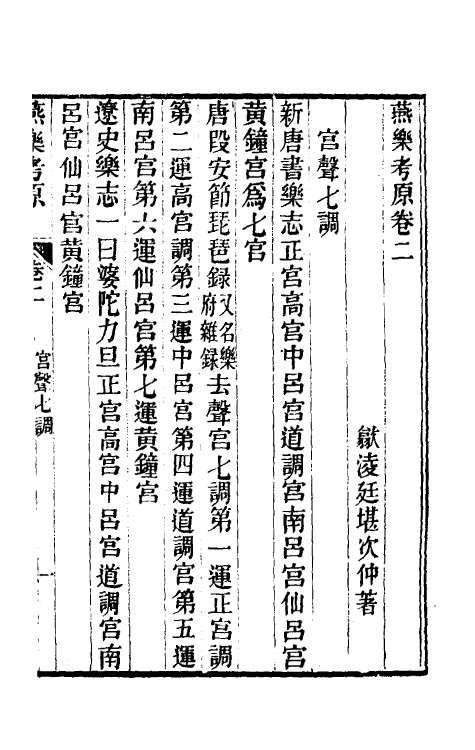 燕樂考原卷二
歙淩廷堪次仲著
宮聲七調
新唐書樂志正宮高宮中呂宮道調宮南呂宮仙呂宮
黃鐘宮爲七宮
唐段安節琵琶録又名樂府雜録去聲宮七調第一運正宮調
第二運高宮調第三運中呂宮第四運道調宮第五運
南呂宮第六運仙呂宮第七運黃鐘宮
遼史樂志一曰婆陀力旦正宮高宮中呂宮道調宮南
呂宮仙呂宮黃鐘宮
燕樂考原 卷二 宮聲七調 一